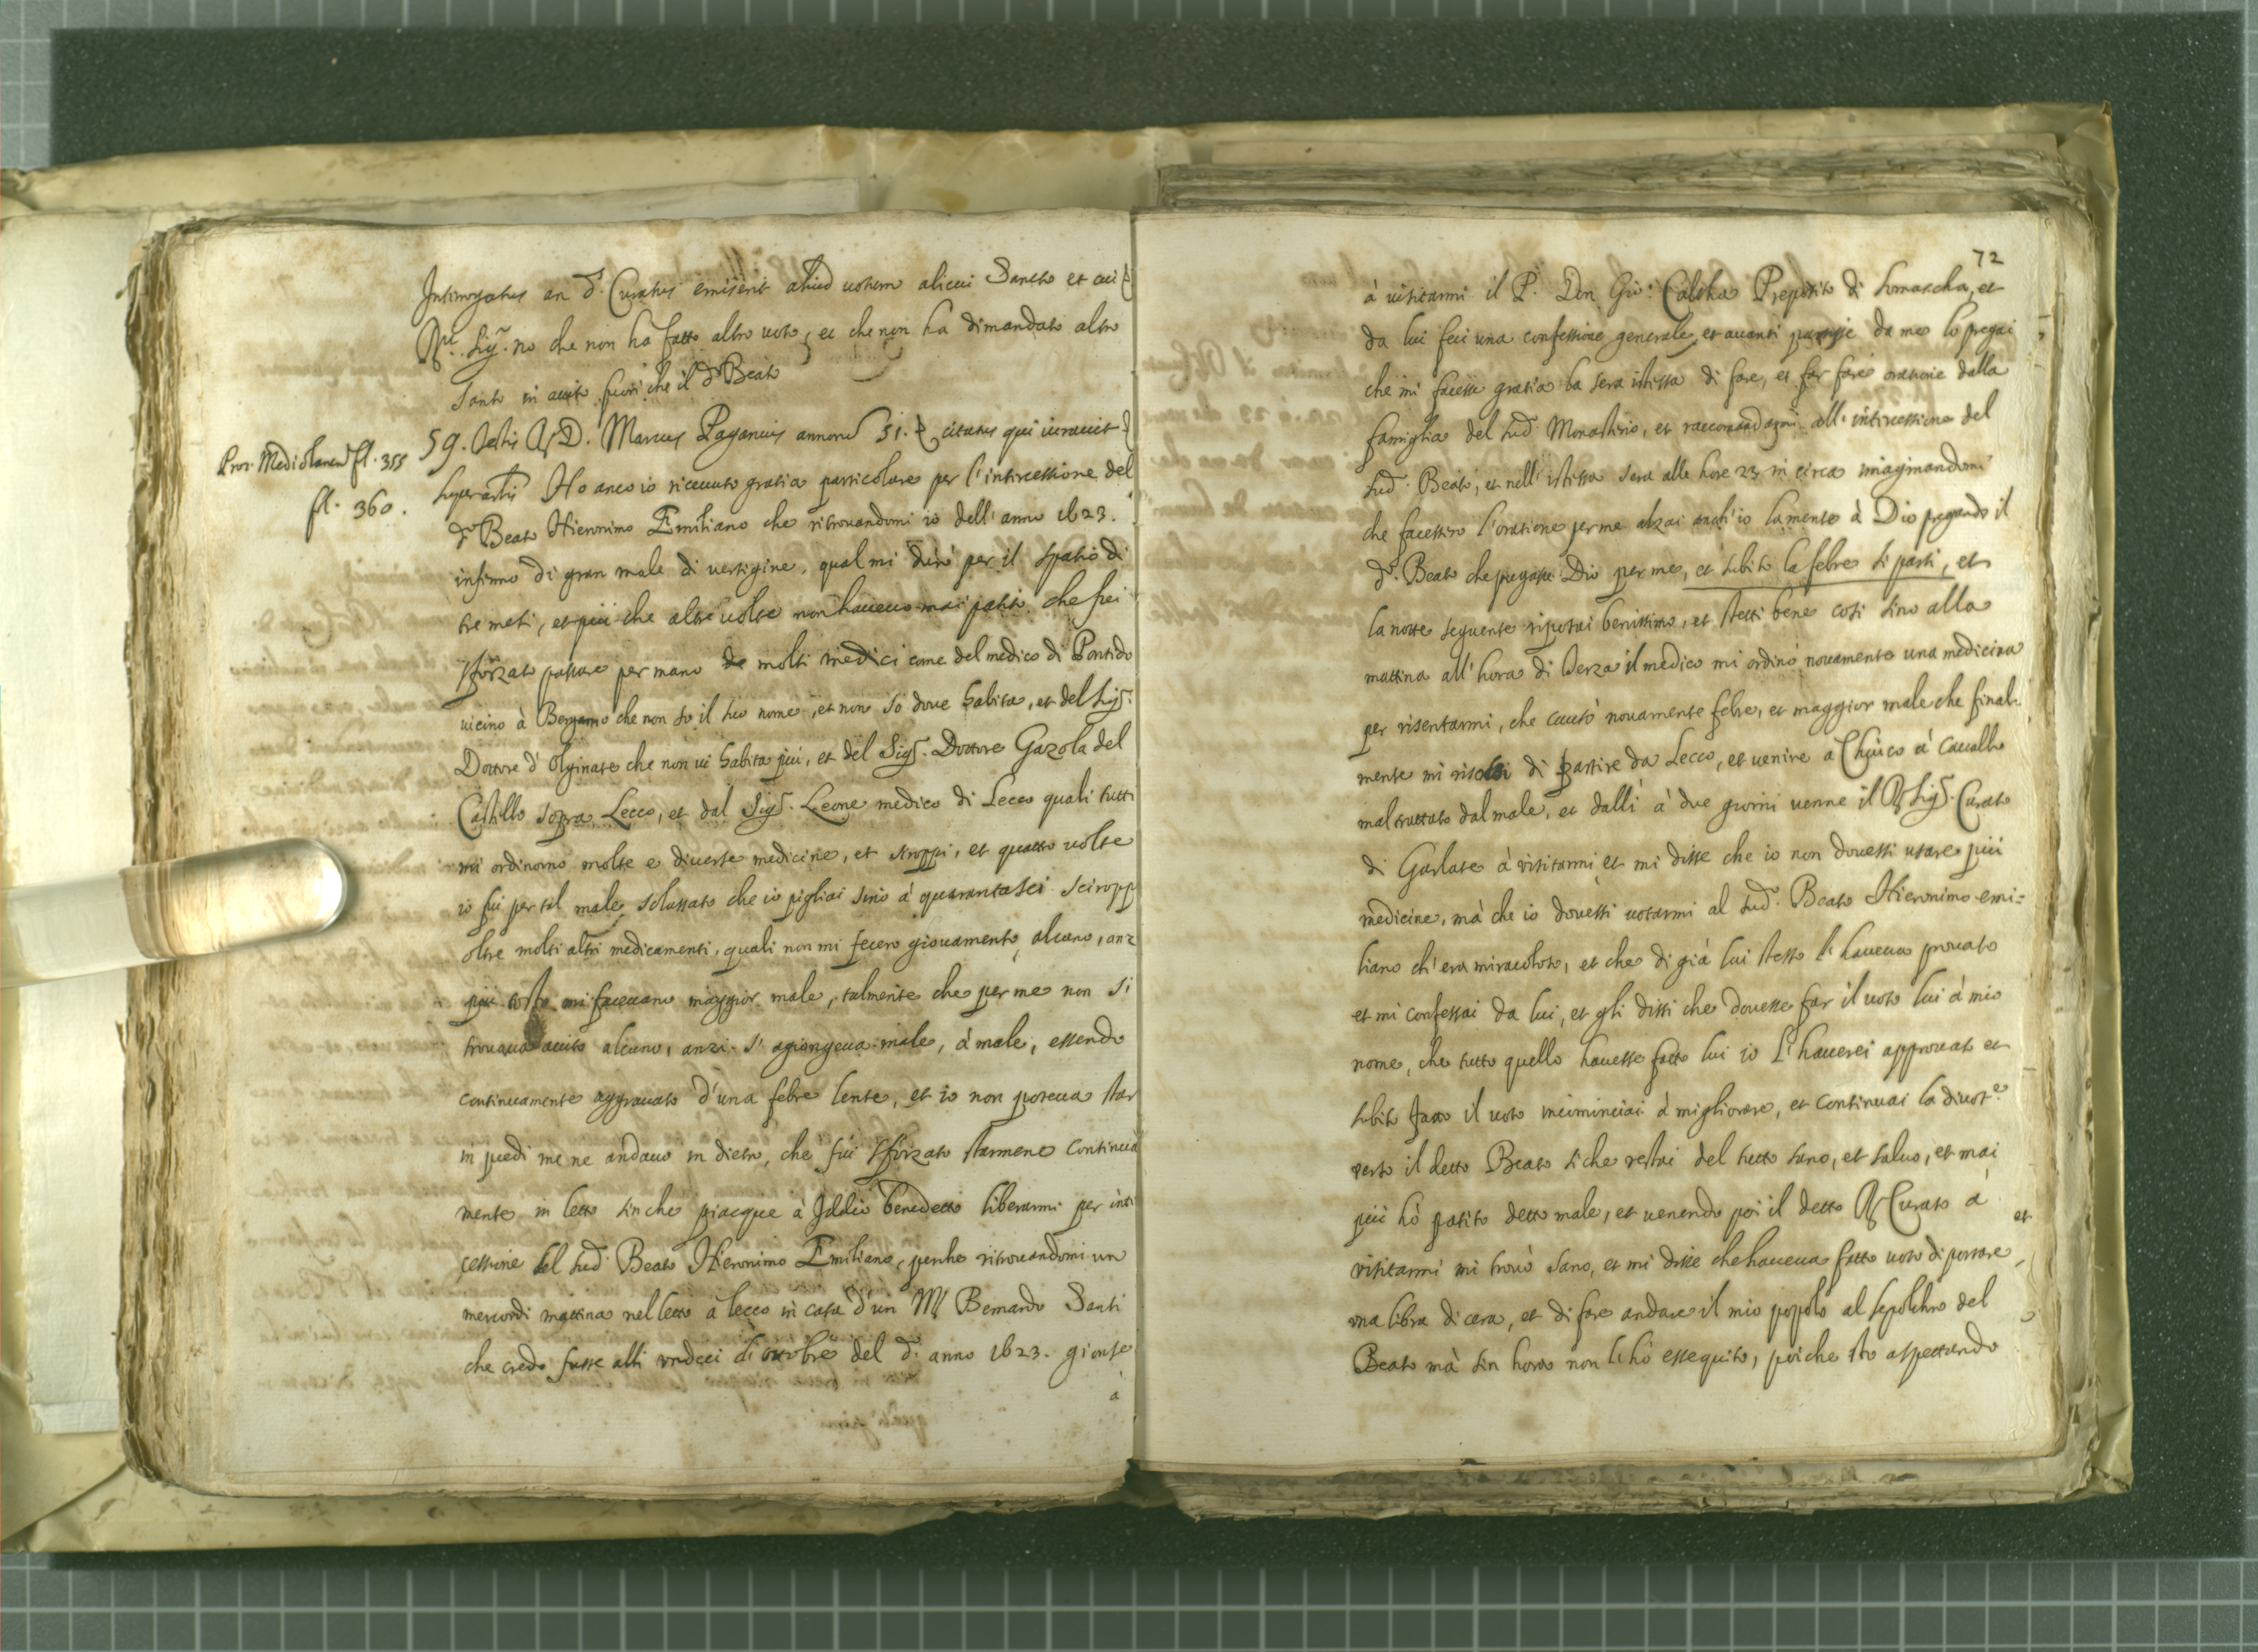 Interrogatus an d.º Curatus emiserit aliud votum alicui Sancto et cui
R. Sig.r no che non ha fatto altro voto, et che non ha dimandato altro
Santo in aiuto fuori che il d.º Beato
Proc. Mediolanen fl. 355
fl. 360.
59. Testis R. D. Marcus Paganius annorū 51. citatus qui iuravit
super artis Ho anco io ricevuto gratia particolare per l'intercessione del
d.º Beato Hieronimo Emiliano che ritrovandomi io dell'anno 1623.
infirmo di gran male di vertigine, qual mi durò per il spatio di
tre mesi, et più che altre volte non havevo mai patito che fui
sforzato passare per mano de molti medici come del medico di Pontido
vicino à Bergamo che non so il suo nome, et non so dove habita, et del Sig.r
Dottore d'Olginate che non vi habita più, et del Sig.r Dottore Gazola del
Castello sopra Lecco, et dal Sig.r Leone medico di Lecco quali tutti
mi ordinorno molte e diverse medicine, et siroppi, et quattro volte
io fui per tal male solassato che io pigliai sino à quarantasei sciropp
oltre molti altri medicamenti, quali non mi fecero giovamento alcuno, anz
più tosto mi facevano maggior male, talmente che per me non si
trovava aiuto alcuno, anzi s'agiongeva male, à male, essendo
continuamente aggravato d'una febre lente, et io non poteva star
in piedi me ne andavo in dietro, che fui sforzato starmene continua
mente in letto sinche piacque à Iddio benedetto liberarmi per inter
cessione del sud.º Beato Hieronimo Emiliano, perche ritrovandomi un
mercordi mattina nel letto à Lecco in casa d'un M. Bernardo Santi
che credo fusse alli undeci di ottobre del d.º anno 1623. gionse
à
72
à visitarmi il P. Don Gio: Calotta Preposito di Somascha, et
da lui feci una confessione generale, et avanti partisse da me lo pregai
che mi facesse gratia la sera istessa di fare, et far fare oratione dalla
famiglia del sud.º Monasterio, et raccomandarmi all'intercessione del
sud.º Beato, et nell'istessa sera alle hore 23 in circa imaginandomi
che facessero l'oratione per me alzai anch'io la mente à Dio pregando il
d.º Beato che pregasse Dio per me, et subito la febre si parti, et
la notte seguente riposai benissimo, et stetti bene cosi sino alla
mattina all'hora di Terza il medico mi ordinò novamente una medicina
per risentarmi, che causò novamente febre, et maggior male che final-
mente mi risolsi di partire da Lecco, et venire a Chiuso à cavallo
mal trattato dal male, et dalli à due giorni venne il R. Sig.r Curato
di Garlate à visitarmi et mi disse che io non dovessi usare più
medicine, mà che io dovessi votarmi al sud.º Beato Hieronimo emi=
liano ch'era miracoloso, et che di già lui stesso l'haveva provato
et mi confessai da lui, et gli dissi che dovesse far il voto lui à mio
nome, che tutto quello havesse fatto lui io l'haverei approvato et
subito fatto il voto incominciai à migliorare, et continuai la divot.e
verso il detto Beato siche restai del tutto sano, et salvo, et mai
più hò patito detto male, et venendo poi il detto R. Curato à
visitarmi mi trovò sano, et mi disse che haveva fatto voto di portare
et
una libra di cera, et di fare andare il mio popolo al sepolchro del
Beato mà sin hora non l'hò essequito, poiche sto aspettando